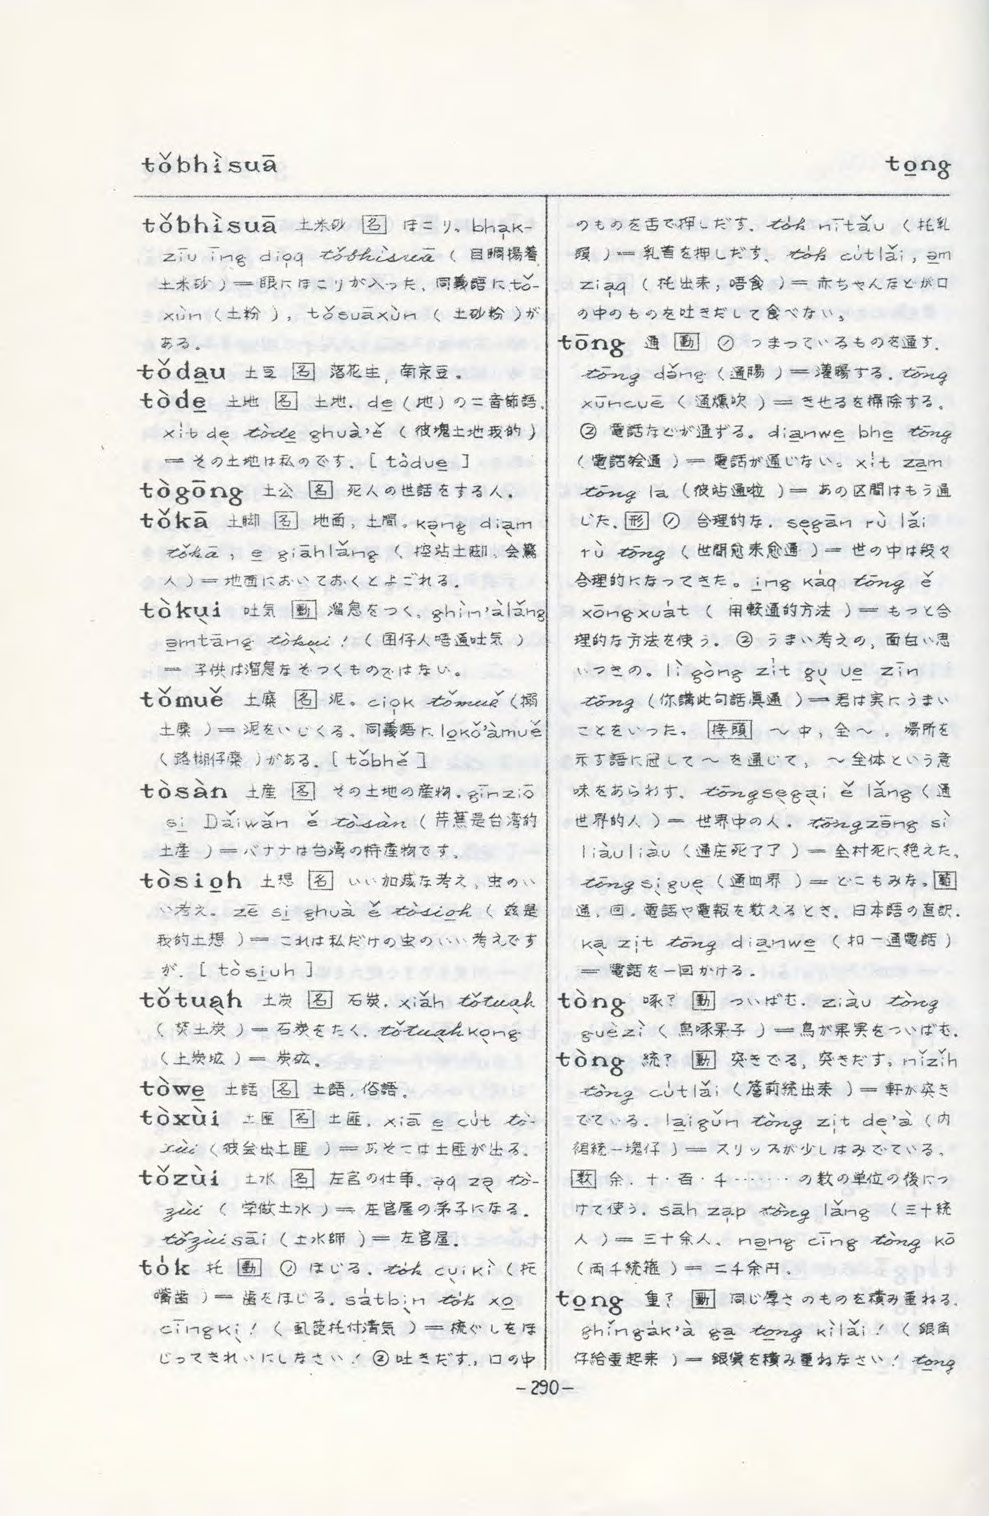 tǒbhìsuā
to̲ng
tǒbhìsuā 土米砂 [名] ほこり。bha̲k-
ziu īng dio̲q tǒbhìsuā ( 目睭揚着
土米砂 ) = 眼にほこりが入った。同義語にtǒ-
xùn (土粉), tǒsuāxùn ( 土砂粉 )が
ある。
tǒda̲u 土豆 [名] 落花生, 南京豆。
tòde̲ 土地 [名] 土地。de̲ (地) の二音節語。
xit de tòde̲ ghuà'ě ( 彼塊土地我的 )
= その土地は私のです。[ tòdue̲ ]
tògōng 土公 [名] 死人の世話をする人。
tǒkā 土脚 [名] 地面, 土間。
tǒkā, e̲ giāhlǎng ( 土脚, 会驚
人 ) = 地面においておくとよごれる。
tòkųi 吐気 [動] 溜息をつく。ghìn'àlǎng
a̲mtāng tòkųi ! ( 囝仔人唔通吐気 )
= 子供は溜息などつくものではない。
tǒmuě 土糜 [名] 泥。 tǒmuě (
土糜 ) = 泥をいじくる。同義語に lo̲kǒ'àmuě
( 路糊仔糜 )がある。[ tǒbhě ]
tòsàn 土産 [名] その土地の産物。gīnziō
si̲ Dǎiwǎn ě tòsàn ( 芹蕉是台湾的
土産 ) = バナナは台湾の特産物です。
tòsio̲h 土想 [名] いい加減な考え, 虫のい
い考え。zē si̲ ghuà ě tòsio̲h ( 這是
我的土想 ) = これは私だけの虫のいい考えです
が。[ tòsi̲uh ]
tǒtųah 土炭 [名] 石炭。xiǎh tǒtųah
( 焚土炭 ) = 石炭をたく。tǒtųah kǫng
(土炭坑 ) = 炭坑。
tòwe̲ 土話 [名] 土語, 俗語。
tòxùi 土匪 [名] 土匪。xiā e̲ cút tò-
xùi ( 彼会出土匪 ) = あそこは土匪が出る。
tǒzùi 土水 [名] 左官の仕事。a̲q zǫ tǒ-
zùi ( 学做土水 ) = 左官屋の弟子になる。
tǒzùisāi (土水師 ) = 左官屋。
tók 托 [動] ① ほじる。tók cųikì (托
嘴歯 ) = 歯をほじる。sátbi̲n tók xo̲
cīngkį ! ( 虱篦托付清気 ) = 梳ぐしをほ
じってきれいにしなさい! ② 吐きだす。口の中
のものを舌で押しだす。tók nītǎu ( 托乳
頭 ) = 乳首を押しだす。tók cútlǎi, a̲m
zia̲q ( 托出来, 唔食 ) = 赤ちゃんなどが口
の中のものを吐きだして食べない。
tōng 通 [動] ① つまっているものを通す。
tōng dǒng (通腸 ) = 灌腸する。tōng
xūncuē ( 通燻吹 ) = きせるを掃除する。
② 電話などが通ずる。dia̲nwe̲ bhe̲ tōng
( 電話 通 ) = 電話が通じない。xit za̲m
tōng la ( 彼站通啦 ) = あの区間はもう通
じた。[形] ① 合理的な。sęgān rù lǎi
rù tōng ( 世間愈来愈通 ) = 世の中は段々
合理的になってきた。i̲ng káq tōng ě
xōngxuát ( 用較通的方法 ) = もっと合
理的な方法を使う。② うまい考えの, 面白い思
いつきの。lì gòng zit gų ue̲ zīn
tōng (你講此句話真通 ) = 君は実にうまい
ことをいった。[接頭] ～中, 全～。場所を
示す語に冠して～を通じて, ～全体という意
味をあらわす。tōngsęgąi ě lǎng ( 通
世界的人 ) = 世界中の人。tōngzāng sì
liàuliàu ( 通庄死了了 ) = 全村死に絶えた。
tōngsįguę (通四界 ) = どこもみな。[量]
通, 回。電話や電報を数えるとき。日本語の直訳。
ką zi̲t tōng dia̲nwe̲ ( 扣一通電話 )
= 電話を一回かける。
tòng 啄? [動] ついばむ。ziàu tòng
guèzì ( 鳥啄果子 ) = 鳥が果実をついばむ。
tòng 統? [動] 突きでる, 突きだす。nǐzǐh
tòng cútlǎi (簷前統出来 ) = 軒が突き
でている。la̲igǔn tòng zi̲t de'à (内
裙統一塊仔 ) = スリップが少しはみでている。
[数] 余。十・百・千……の数の単位の後につ
けて使う。sāh za̲p tòng lǎng ( 三十統
人 ) = 三十余人。no̲ng cīng tòng kō
(両千統箍 ) = 二千余円。
to̲ng 重? [動] 同じ厚さのものを積み重ねる。
ghǐngák'à ga̲ to̲ng kìlǎi ! ( 銀角
仔給重起来 ) = 銀貨を積み重ねなさい! to̲ng
-290-